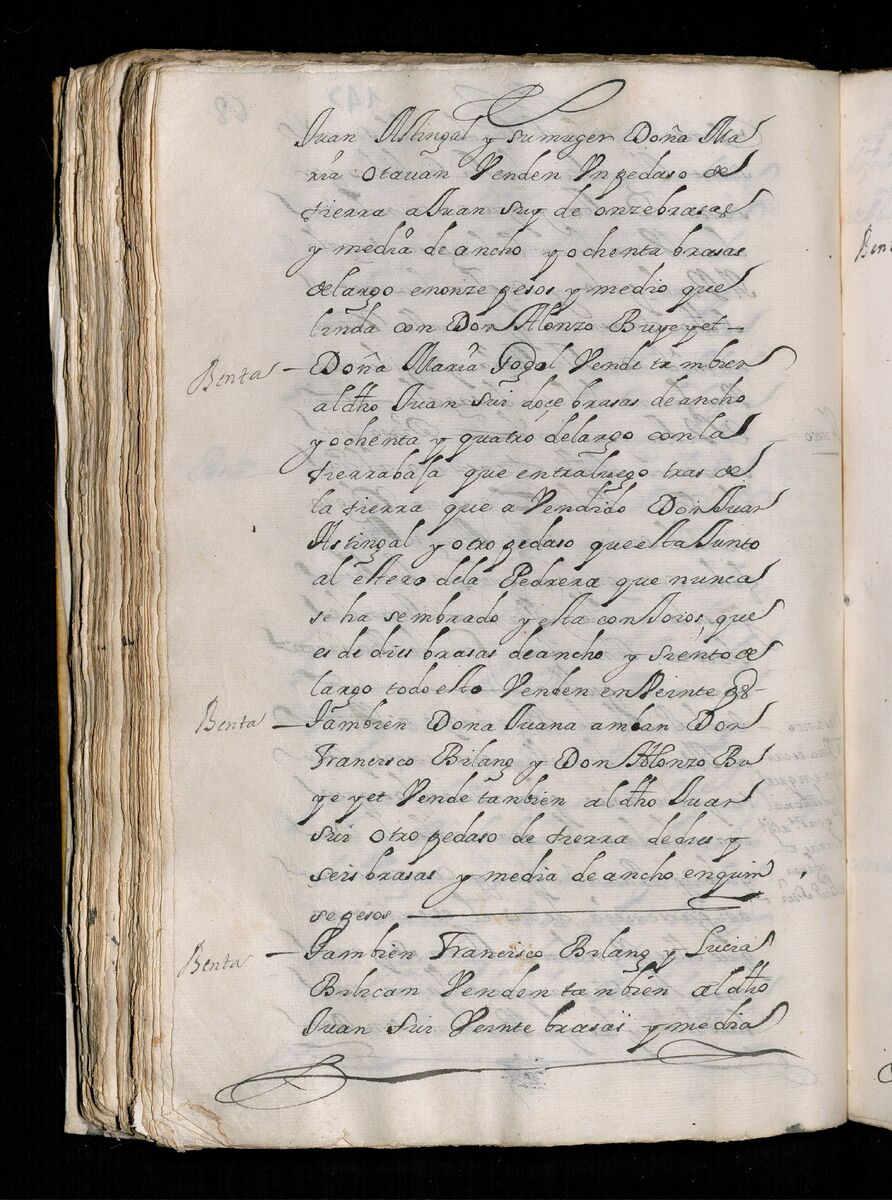 Juan Astingal y su muger Doña Ma
ria Otauan Venden Un pedaso de
tierra a Juan Suy de onze brasas
y media de ancho y ochenta brasas
de largo en onze pesos y medio que
linda con Don Alonzo Buyeyet
Benta
Doña Maria Gogol Vende tambien
al dho Juan Sui doçe brasas de ancho
y ochenta y quatro de largo con la
tierra baja que entra luego tras de
la tierra que a Vendido Don Juan
Astingal y otro pedaso que esta Junto
al estero de la Pedrera que nunca
se ha sembrado y esta con que
es de dies brasas de ancho y siento de
largo todo esto Venden en Veinte ps
Benta
Tambien Dona Juana amban Don
Francisco Bilang y Don Alonzo Bu
yeyet Vende tanbien al dho Juan
Sui otro pedaso de tierra de dies y
seis brasas y media de ancho en quin
se pesos
Benta
Tambien Francisco Bilang y Lucia
Bilican Venden tanbien al dho
Juan Sui Veinte brasas y media
Bent